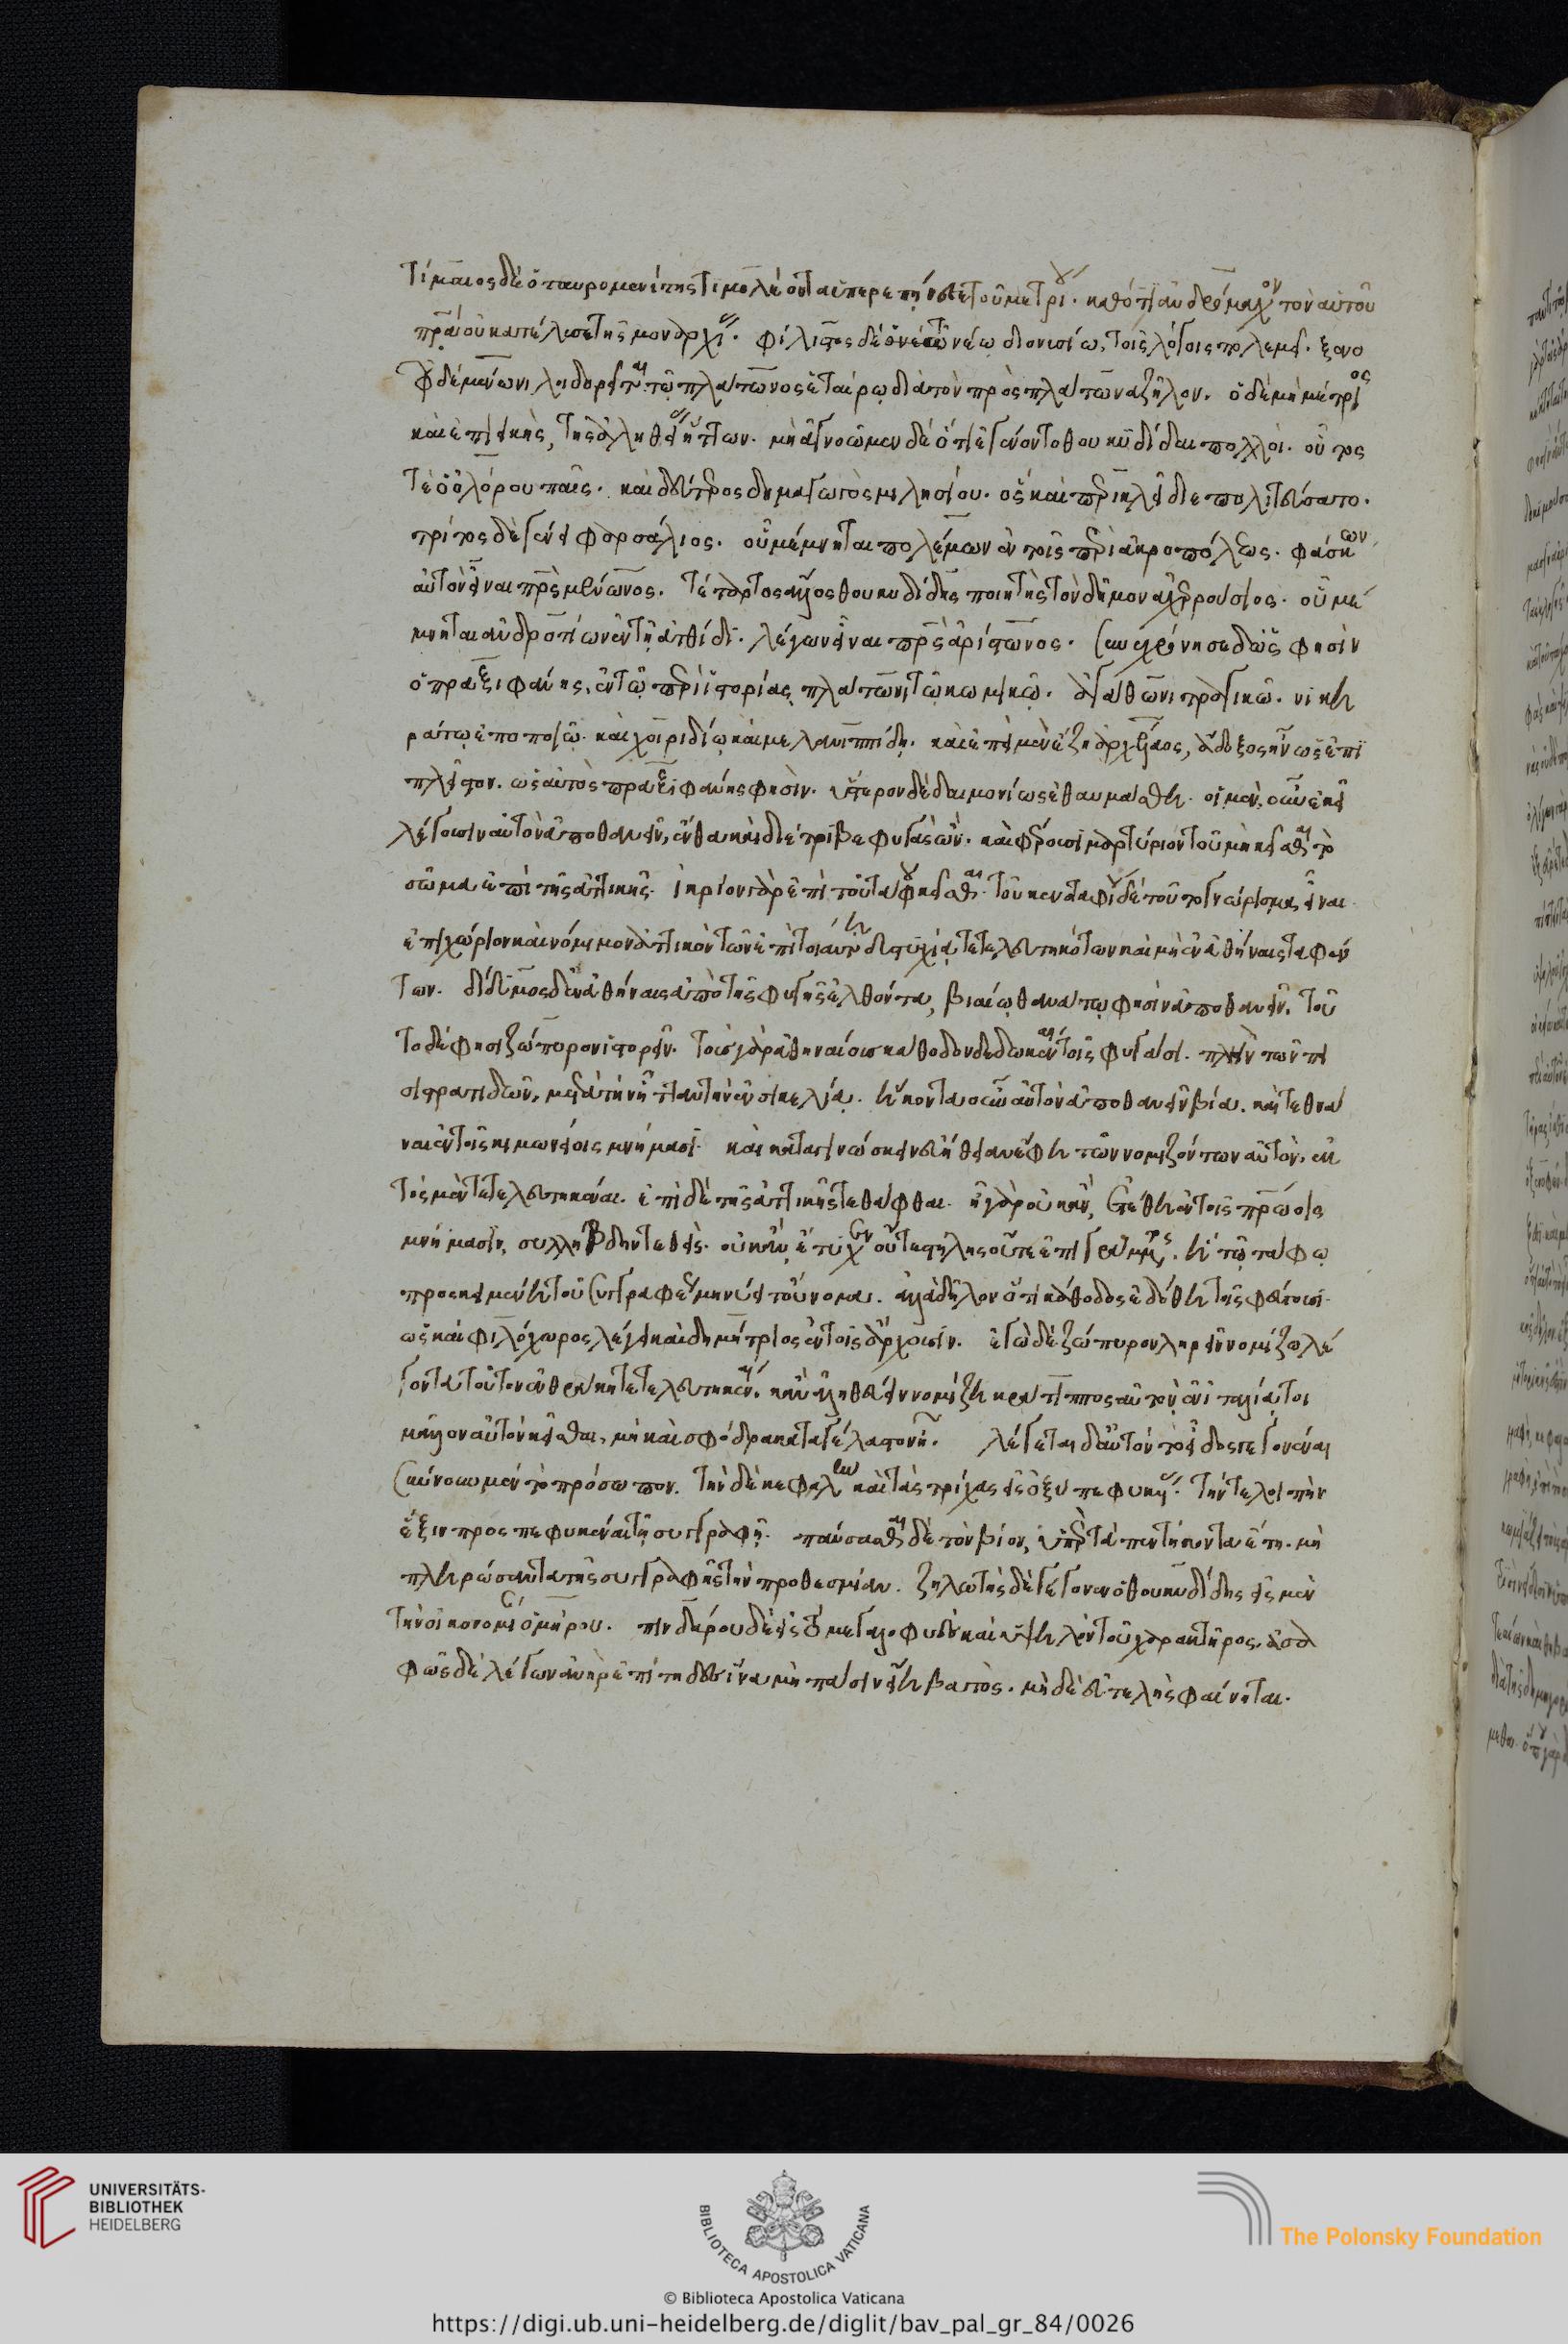 Τίμαιος δὲ ὁ ταυρομενίτης τιμολέοντα ὑπερεπήνεσε τοῦ μετρίου. καθότι ἀνδρόμαχον τὸν αὐτοῦ
πρα οὐ κατέλυσε τῆς μοναρχίας. φίλιστος δὲ τῷ νέω διονυσίω, τοῖς λόγοις πολεμεῖ. ξενο
φῶν δὲ μένωνι λοιδορεῖται τῷ πλάτωνος ἑταίρῳ διὰ τὸν πρὸς πλάτωνα ζῆλον. ὁ δὲ μὴ μέτριος
καὶ ἐπιεικὴς, τῆς ἀληθείας ἥττων. μὴ ἀγνοῶμεν δὲ ὅτι ἐγένοντο θουκυδίδαι πολλοὶ. οὗτος
τὲ ὁ ὀλόρου παῖς. καὶ δεύτερος δημαγωγὸς μιλησίου. ὃς καὶ περικλεῖ διεπολιτεύσατο.
τρίτος δὲ γένει φαρσάλιος. οὗ μέμνηται πολέμων ἐν τοῖς περὶ ἀκροπόλεως. φάσκων
αὐτὸν εἶναι πρς μένωνος. τέταρτος ἄλλος θουκυδίδης ποιητὴς τὸν δῆμον ἀχερδούσιος. οὗ μέ
μνηται ἀνδροτίων ἐν τῇ ἀτθίδι. λέγων εἶναι πρς ἀρίστωνος. συνεχρόνησε δ ὥς φησὶν
ὁ πραξιφάνης, ἐν τῷ περὶ ἱστορίας πλάτωνι τῷ κωμικῷ. ἀγάθωνι τραγικῶ. νικη
ράτῳ ἐποποιῷ. καὶ χοιριδίῳ καὶ μελανιππίδῃ. καὶ ἐπεὶ μὲν ἔζη ἀρχέλαος, ἄδοξος ἦν ὡς ἐπὶ
πλεῖστον. ὡς αὐτὸς πραξιφάνης φησὶν. ὕστερον δὲ δαιμονίως ἐθαυμάσθη. οἱ μὲν οὖν ἐκεῖ
λέγουσιν αὐτὸν ἀποθανεῖν, ἔνθα καὶ διέτριβε φυγὰς ὢν. καὶ φέρουσι μαρτύριον τοῦ μὴ κεῖσθαι τὸ
σῶμα ἐπὶ τῆς ἀττικῆς. ἰκρίον γὰρ ἐπὶ τοῦ τάφου κεῖσθαι. τοῦ κενοταφίου δὲ τοῦτο γνώρισμα εἶναι
ἐπιχώριον καὶ νόμιμον ἀττικὸν τῶν ἐπὶ τοιαύτῃ δυστυχίᾳ τετελευτηκότων καὶ μὴ ἐν ἀθήναις ταφέν
των. δίδυμος δ' ἐν ἀθήναις ἀπὸ τῆς φυγῆς ἐλθόντα, βιαίῳ θανάτῳ φησὶν ἀποθανεῖν. τοῦ
το δέ φησι ζώπυρον ἱστορεῖν. τοὺς γὰρ ἀθηναίους κάθοδον δεδωκέναι τοῖς φυγάσι. πλὴν τῶν πι
σιστρατιδῶν, μετὰ τὴν ἧτταν τὴν ἐν σικελίᾳ. ἥκοντα οὖν αὐτὸν ἀποθανεῖν βία. καὶ τεθνά
ναι ἐν τοῖς κιμωνείοις μνήμασι. καὶ καταγινώσκειν εὐήθειαν ἔφη τῶν νομιζόντων αὐτὸν, ἐκ
τὸς μὲν τετελευτηκέναι. ἐπὶ δὲ τῆς ἀττικῆς τεθάφθαι. ἢ γὰρ οὐκ ἂν, ἐτέθη ἐν τοῖς πρώοις
μνήμασιν, συλλήβδην τεθεὶς. οὐκ ἂν ἔτυχεν οὔτε στήλης οὔτε ἐπιγράμματος. ἣ τῷ τάφῳ
προσκειμένη τοῦ συγγραφέως μηνύει τοὔνομα. ἀλλὰ δῆλον ὅτι κάθοδος ἐδόθη τοῖς φεύγουσι.
ὡς καὶ φιλόχωρος λέγει καὶ δημήτριος ἐν τοῖς ἄρχουσιν. ἐγὼ δὲ ζώπυρον ληρεῖν νομίζω λέ
γοντα τοῦτον ἐν θράκη τετελευτηκέναι. κἂν ἀληθεύειν νομίζη κράτιππος αὐτὸν. ἐν ἰταλίᾳ τοι
μᾶλλον αὐτὸν κεῖσθαι, μὴ καὶ σφόδρα καταγέλαστον ᾖ. λέγεται δ' αὐτὸν τὸ εἶδος γεγονέναι
σύνουν μὲν τὸ πρόσωπον. τὴν δὲ κεφαλὴν καὶ τὰς τρίχας εἰς ὀξὺ πεφυκυίας. τήν τε λοιπὴν
ἕξιν προσπεφυκέναι τῇ συγγραφῇ. παύσασθαι δὲ τὸν βίον, ὑπὲρ τὰ πεντήκοντα ἔτη. μὴ
πληρώσαντα τῆς συγγραφῆς τὴν προθεσμίαν. ζηλωτὴς δὲ γέγονεν ὁ θουκυδίδης εἰς μὲν
τὴν οἰκονομίαν ὁμήρου. πινδάρου δὲ εἰς τὸ μεγαλοφυὲς καὶ ὑψηλὸν τοῦ χαρακτῆρος. ἀσα
φῶς δὲ λέγων ἀνὴρ ἐπίτηδες ἵνα μὴ πᾶσιν εἴη βατὸς. μὴ δὲ εὐτελὴς φαίνηται.
UNIVERSITÄTS-
BIBLIOTHEK
HEIDELBERG
BIBLIOTECA APOSTOLICA VATICANA
The Polonsky Foundation
© Biblioteca Apostolica Vaticana
https://digi.ub.uni-heidelberg.de/diglit/bav_pal_gr_84/0026